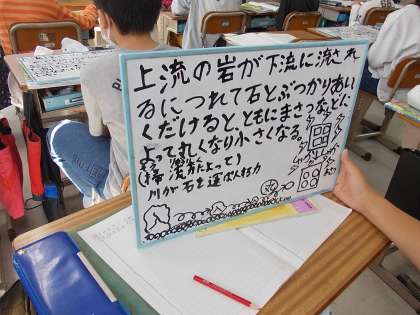 上流の岩が下流に流され
るにつれて石とぶつかりあい
くだけると、ともにまさつなどに
よって丸くなり小さくなる。
川が石を運ぱん